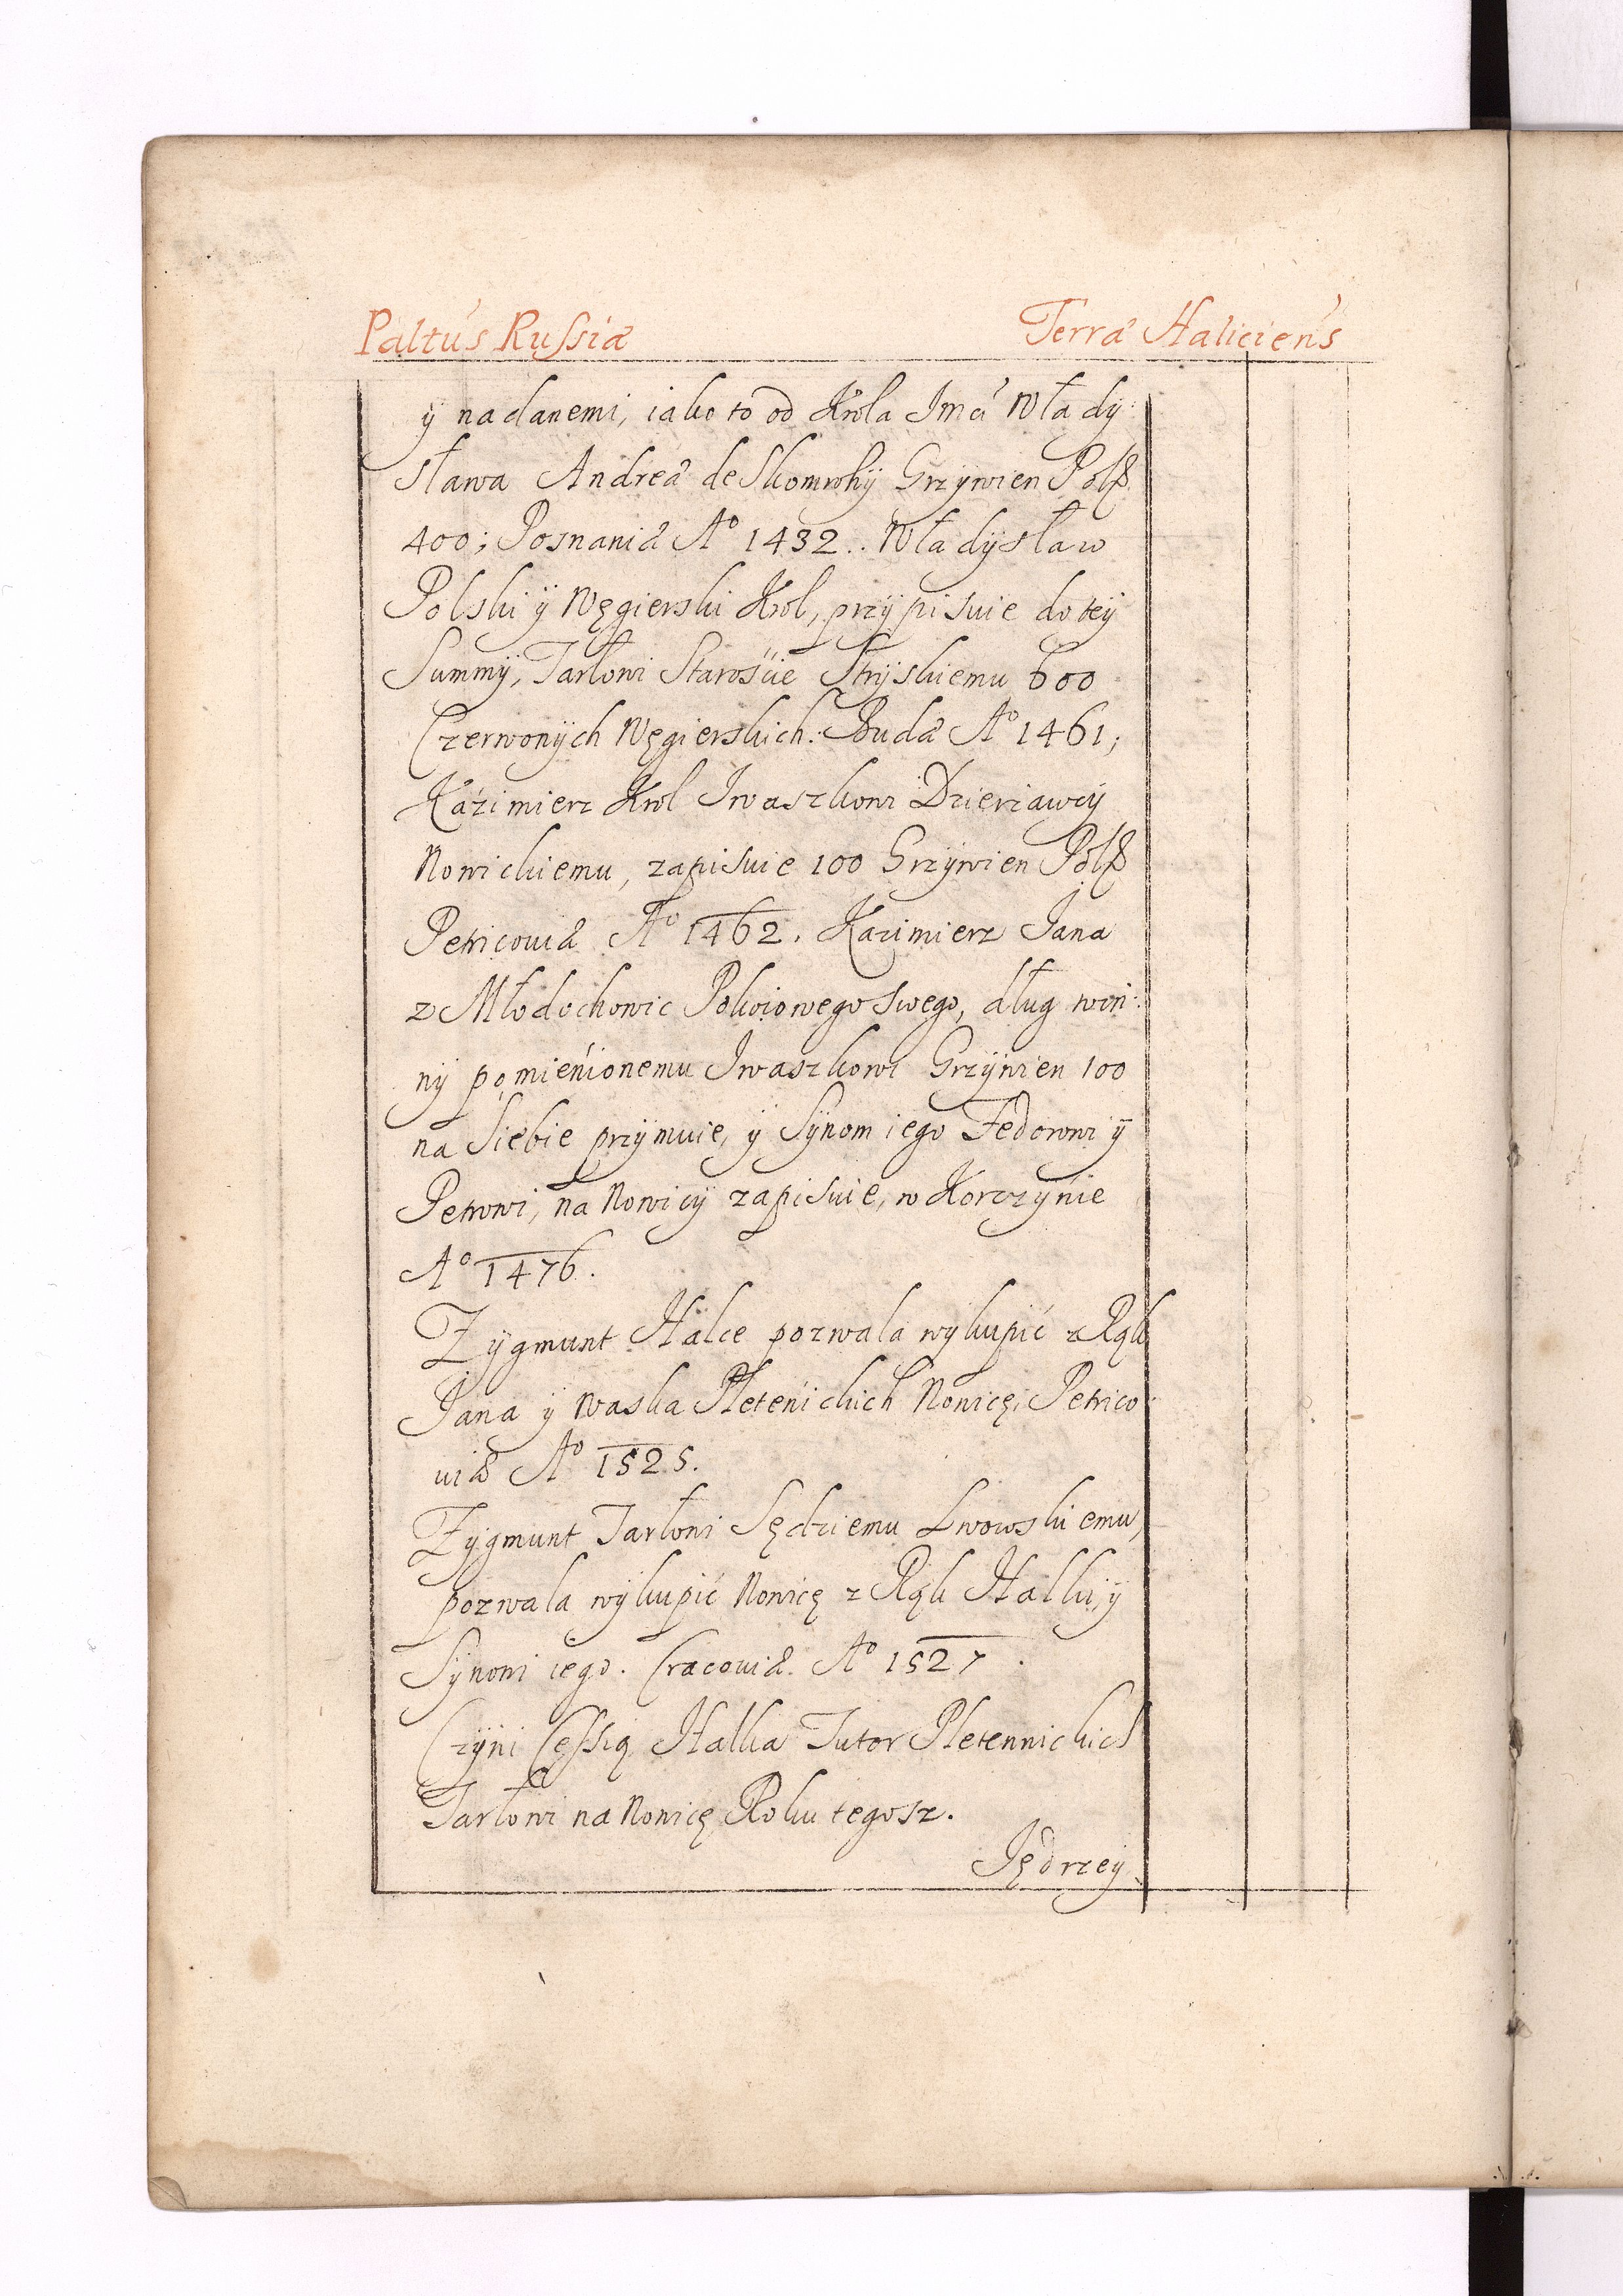 Paltus Russiæ Terræ Haliciens
ÿ nadanemi, iako to od Krola Jmći Władÿ:
sława Andreæ de Skomrohÿ Grzÿwien Polß
400; Posnaniæ A° 1432.. Władÿsław
Polski ÿ Węgierski Krol, przÿpisuie do teÿ
Summÿ, Tarłowi Starośćie Strÿskiemu 600
Czerwonÿch Węgierskich: Budæ A° 1461;
Kaźimierz Krol Iwaszkowi Dzierżawcÿ
Nowickiemu, zapisuie 100 Grzÿwien Polß
Petricoviæ A° 1462. Kazimierz Jana
z Młodochowic Pokoiowego swego, dług win:
nÿ pomieńionemu Iwaszkowi Grzÿwien 100
na Siebie przÿmuie, ÿ Sÿnom iego Fedorowi ÿ
Petrowi, na Nowicÿ zapisuie, w Korczÿnie
A° 1476.
Zÿgmunt Halce pozwala wÿkupić z Rąk
Jana ÿ Waska Pletenickich Nowicę; Petrico
viæ A° 1525.
Zÿgmunt Tarłowi Sędziemu Lwowskiemu,
pozwala wÿkupić Nowicę z Rąk Halki, ÿ
Sÿnowi iego. Cracoviæ. A° 1527.
Czÿni Cessią Halka Tutor Pletennickich
Tarłowi na Nowicę Roku tegosz.
Jędrzeÿ